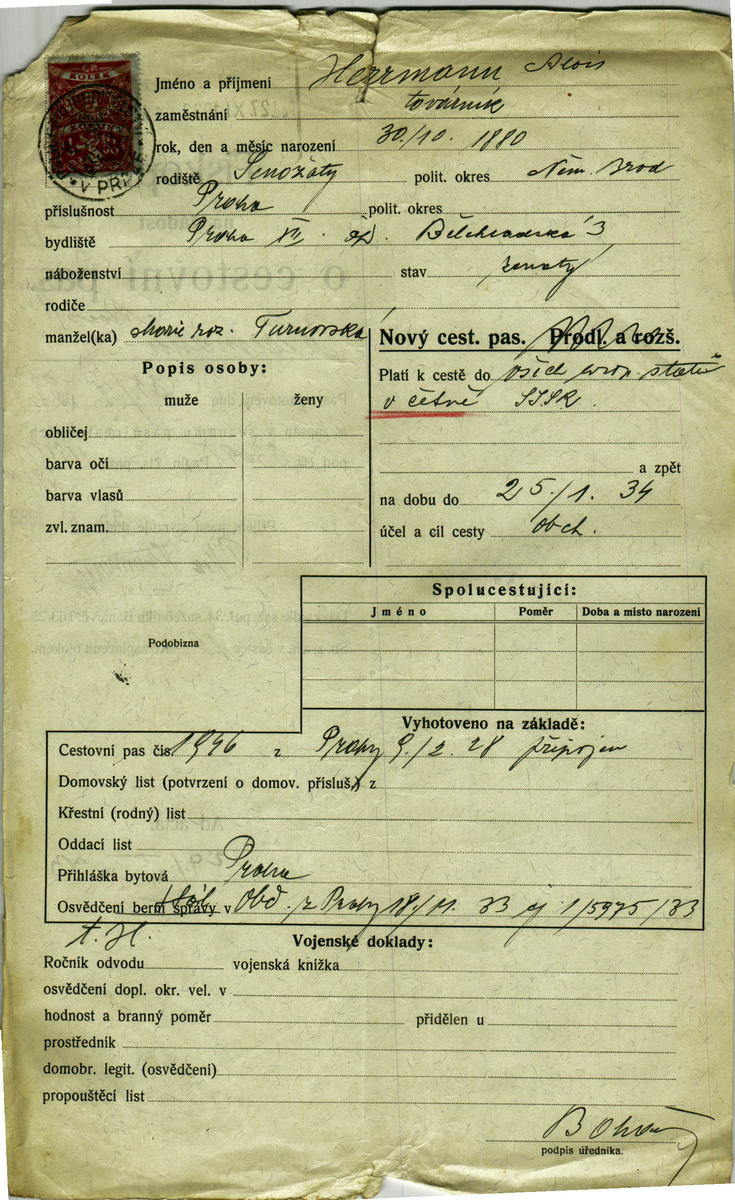 ČR
KOLEK
V PRAZE
Jméno a příjmení Herrmann Alois
zaměstnání továrník
rok, den a měsíc narození 30./10. 1880
rodiště Senožaty polit. okres Něm. Brod
příslušnost Praha polit. okres
bydliště Praha XII. Bělehradská 3
náboženství stav ženatý
rodiče
manžel(ka) Marie roz. Turnovská
Nový cest. pas. Prodl. a rozš.
Popis osoby:
muže ženy
obličej
barva očí
barva vlasů
zvl. znam.
Platí k cestě do všech evrop. států
v četně SSSR.
a zpět
na dobu do 25./1. 34
účel a cíl cesty obch.
Podobizna
Spolucestující:
Jméno Poměr Doba a místo narození
Vyhotoveno na základě:
Cestovní pas čís. 1946 z Prahy 9./2. 28 připojen
Domovský list (potvrzení o domov. přísluš.) z
Křestní (rodný) list
Oddací list
Přihláška bytová Praha
Osvědčení berní správy v Obd. z Prahy 18./11. 33 čj 1/5975/33
t. H.
Vojenské doklady:
Ročník odvodu vojenská knížka
osvědčení dopl. okr. vel. v
hodnost a branný poměr přidělen u
prostředník
domobr. legit. (osvědčení)
propouštěcí list
podpis úředníka.